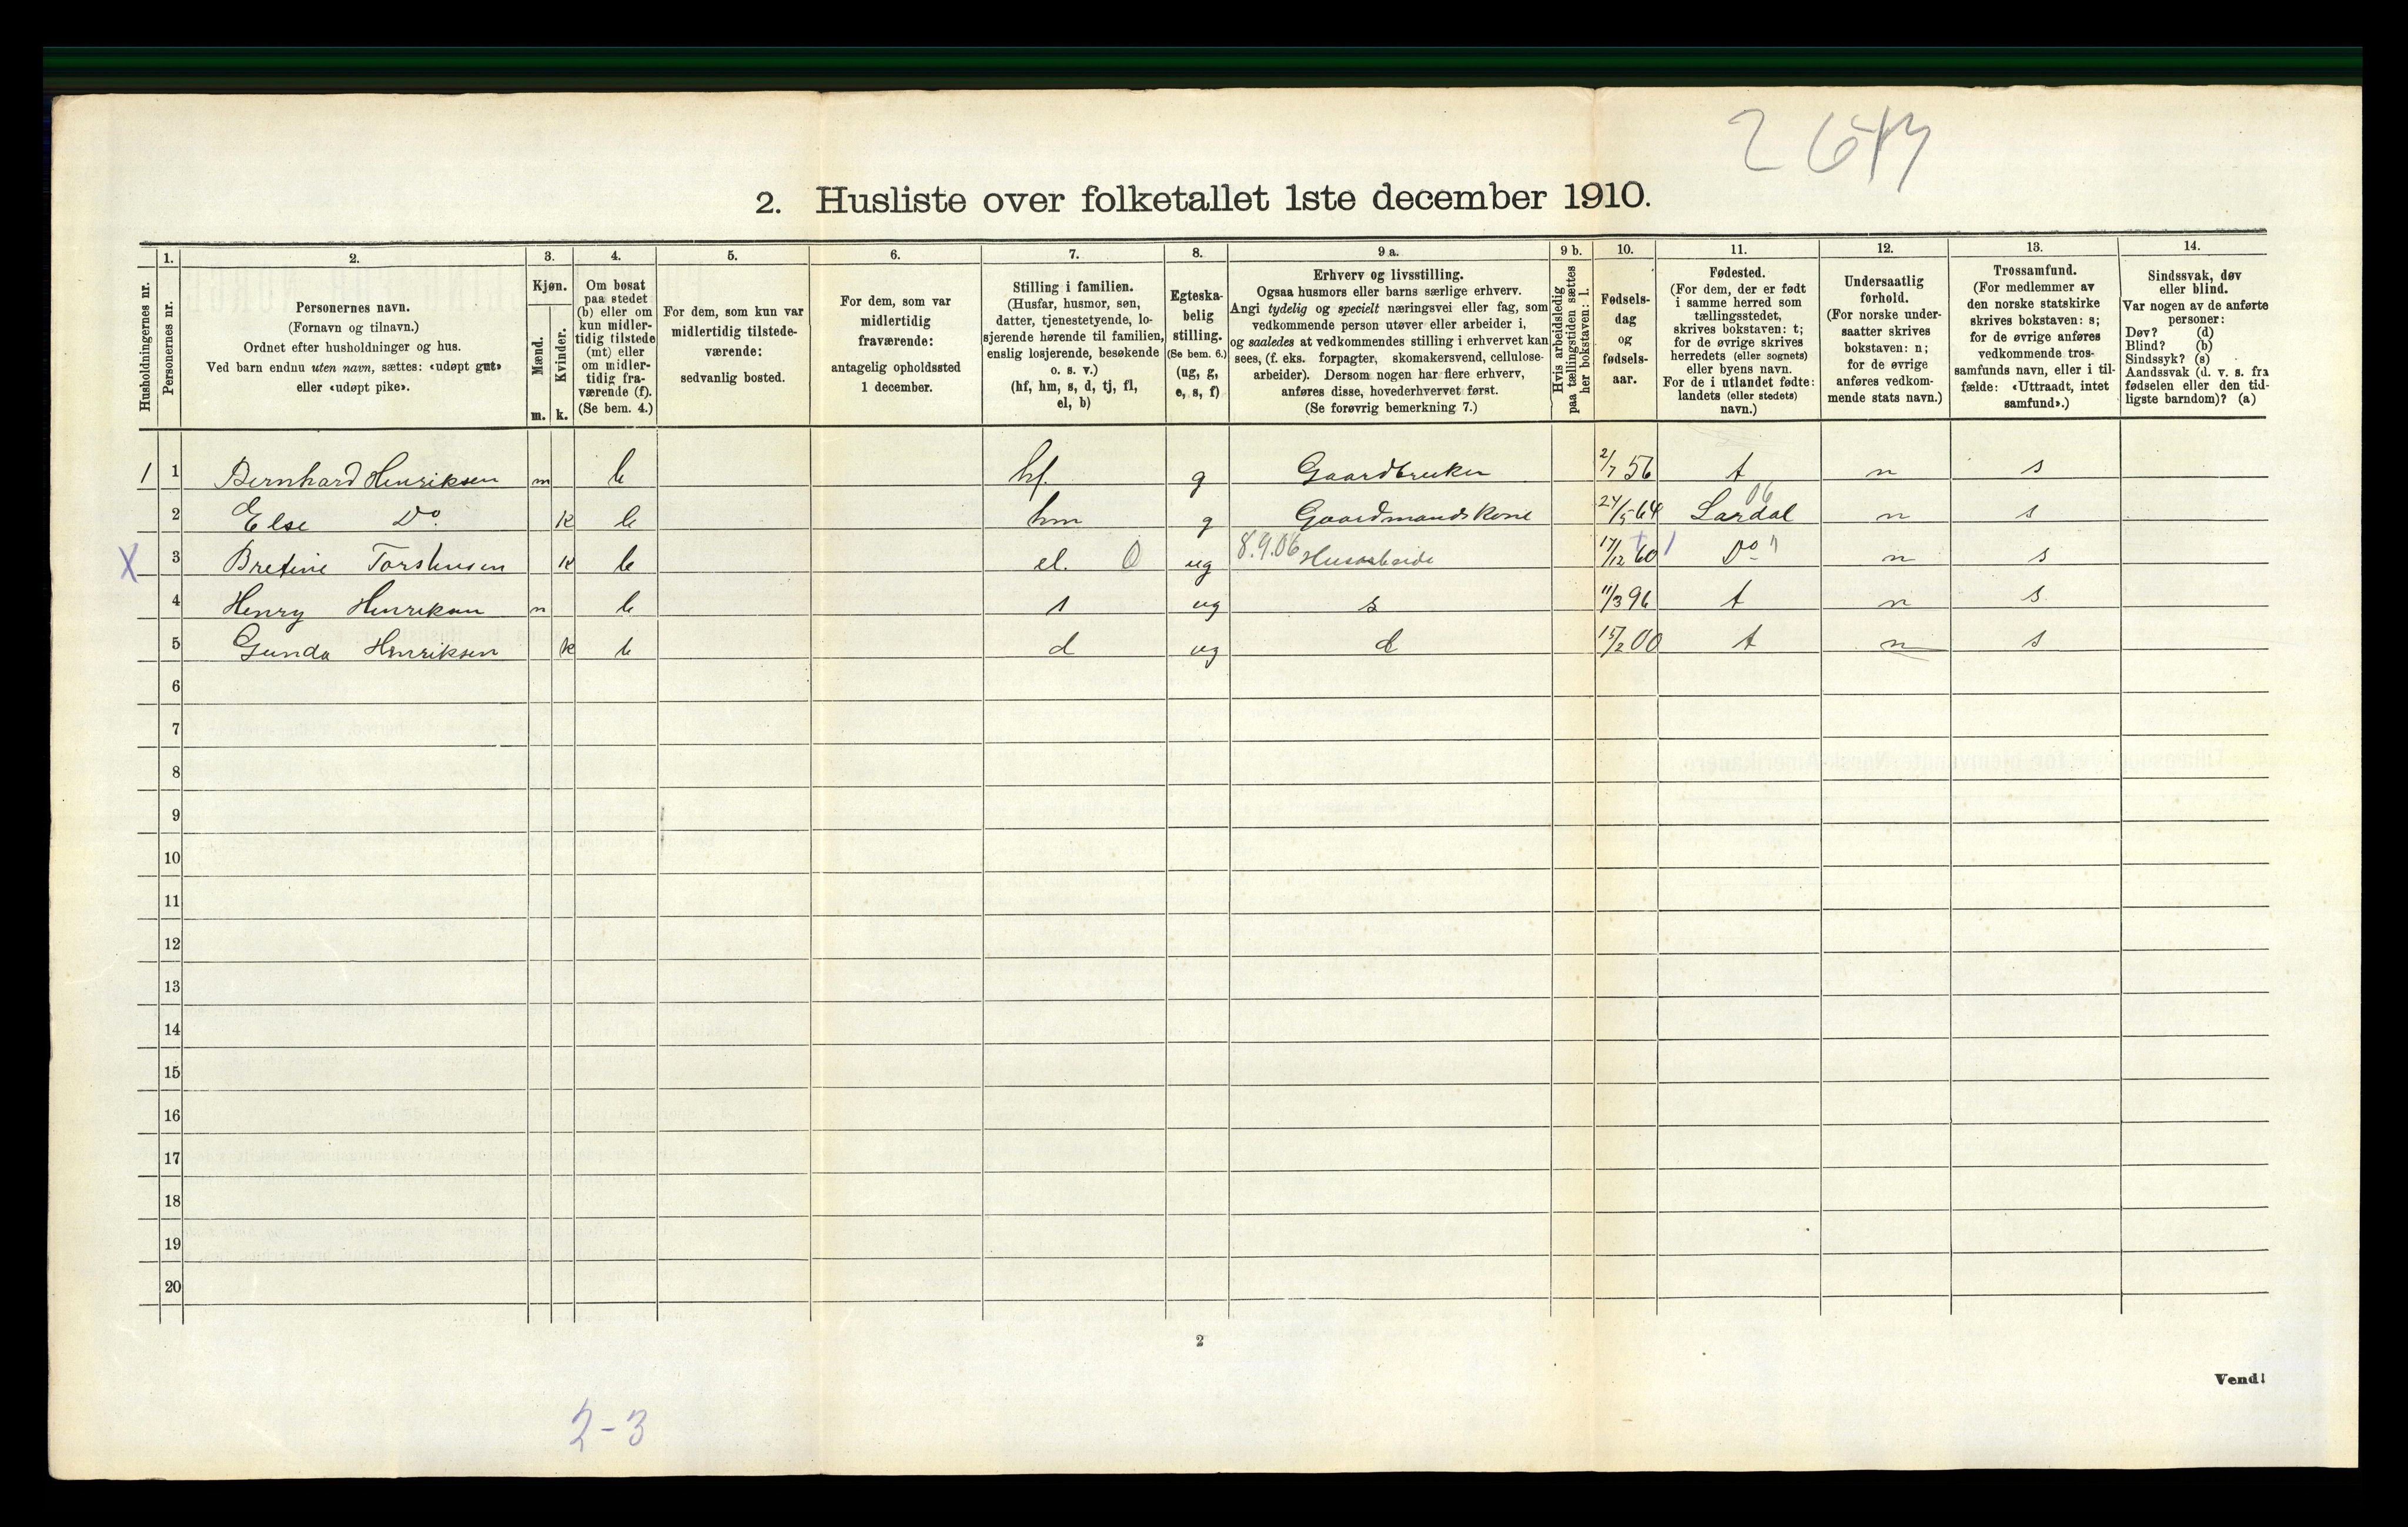 2. Husliste over folketallet 1ste december 1910.
Husholdningernes nr.
1. Personernes nr.
2. Personernes navn.
(Fornavn og tilnavn.)
Ordnet efter husholdninger og hus.
Ved barn endnu uten navn, sættes: «udøpt gut»
eller «udøpt pike».
3. Kjøn.
Mænd. m.
Kvinder. k.
4. Om bosat
paa stedet
(b) eller om
kun midler-
tidig tilstede
(mt) eller
om midler-
tidig fra-
værende (f).
(Se bem. 4.)
5. For dem, som kun var
midlertidig tilstede-
værende:
sedvanlig bosted.
6. For dem, som var
midlertidig
fraværende:
antagelig opholdssted
1 december.
7. Stilling i familien.
(Husfar, husmor, søn,
datter, tjenestetyende, lo-
sjerende hørende til familien,
enslig losjerende, besøkende
o. s. v.)
(hf, hm, s, d, tj, fl,
el, b)
8. Egteska-
belig
stilling.
(Se bem. 6.)
(ug, g,
e, s, f)
9 a. Erhverv og livsstilling.
Ogsaa husmors eller barns særlige erhverv.
Angi tydelig og specielt næringsvei eller fag, som
vedkommende person utøver eller arbeider i,
og saaledes at vedkommendes stilling i erhvervet kan
sees, (f. eks. forpagter, skomakersvend, cellulose-
arbeider). Dersom nogen har flere erhverv,
anføres disse, hovederhvervet først.
(Se forøvrig bemerkning 7.)
9 b. Hvis arbeidsledig
paa tællingstiden sættes
her bokstaven: l.
10. Fødsels-
dag
og
fødsels-
aar.
11. Fødested.
(For dem, der er født
i samme herred som
tællingsstedet,
skrives bokstaven: t;
for de øvrige skrives
herredets (eller sognets)
eller byens navn.
For de i utlandet fødte:
landets (eller stedets)
navn.)
12. Undersaatlig
forhold.
(For norske under-
saatter skrives
bokstaven: n;
for de øvrige
anføres vedkom-
mende stats navn.)
13. Trossamfund.
(For medlemmer av
den norske statskirke
skrives bokstaven: s;
for de øvrige anføres
vedkommende tros-
samfunds navn, eller i til-
fælde: «Uttraadt, intet
samfund».)
14. Sindssvak, døv
eller blind.
Var nogen av de anførte
personer:
Døv? (d)
Blind? (b)
Sindssyk? (s)
Aandssvak (d. v. s. fra
fødselen eller den tid-
ligste barndom)? (a)
1 1 Bernhard Henriksen m b hf. g Gaardbruker 2/7 56 t n s
06
2 Else Do. k b hm g Gaardmandskone 24/5 64 Lardal n s
X 3 Bretine Torstensen k b el. 0 ug 8.9.06 Husarbeide 17/12 60 Do " n s
4 Henry Henriksen m b s ug s 11/3 96 t n s
5 Gunda Henriksen k b d ug d 15/2 00 t n s
6
7
8
9
10
11
12
13
14
15
16
17
18
19
20
2
Vend!
2-3